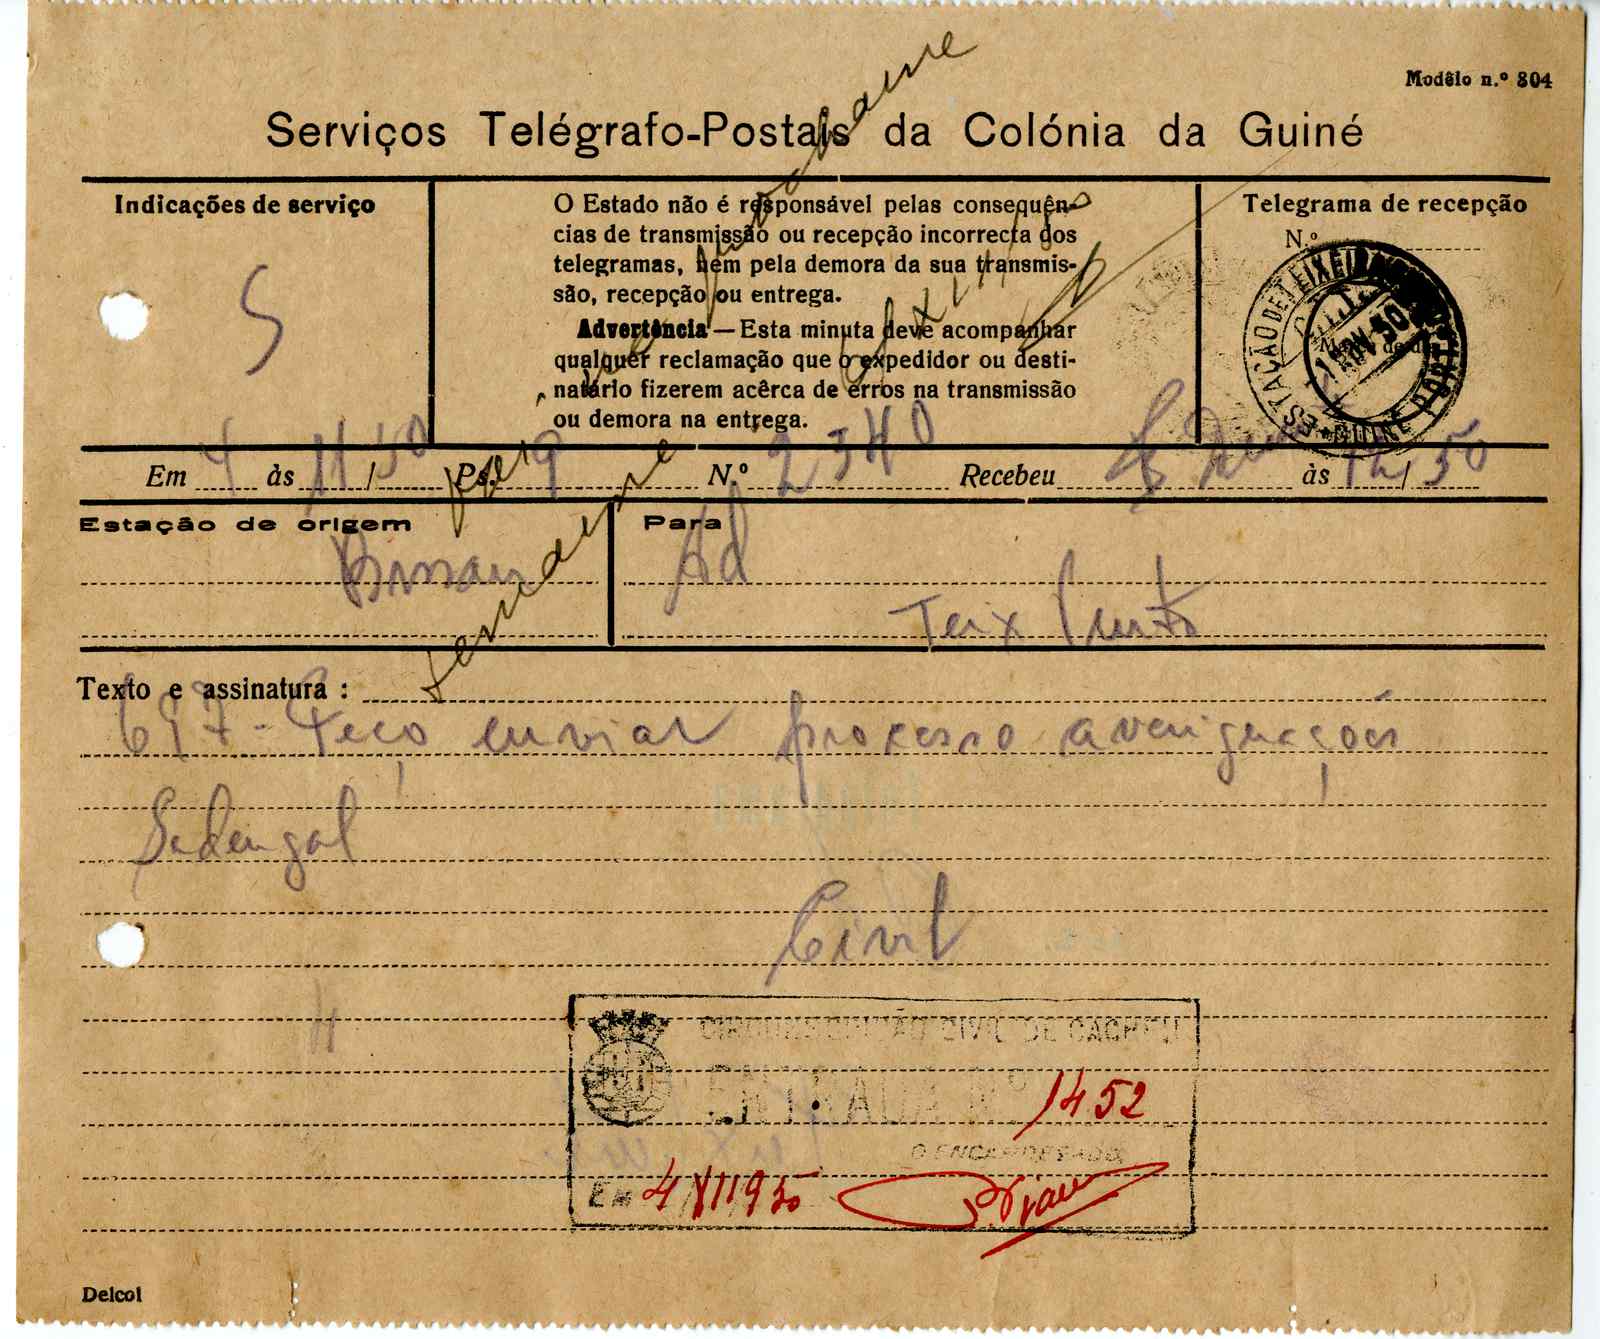 Modêlo n.º 304
Serviços Telégrafo-Postais da Colónia da Guiné
Indicações de serviço
S
O Estado não é responsável pelas consequên-
cias de transmissão ou recepção incorrecta dos
telegramas, nem pela demora da sua transmis-
são, recepção ou entrega.
Advertência — Esta minuta deve acompanhar
qualquer reclamação que o expedidor ou desti-
natário fizerem acêrca de erros na transmissão
ou demora na entrega.
Telegrama de recepção
N.º
ESTAÇÃO DE TEIXEIRA
NOV 50
GUINÉ PORTUG
Em 4 às 11/50 Ps. 9 N.º 2340 Recebeu às 12/50
Estação de origem
Bissau
Para
Ad
Teix Pinto
Texto e assinatura :
697 - Peço enviar processo averiguações
Sedengal
Civil
CIRCUNSCRIÇÃO CIVIL DE CACHEU
ENTRADA Nº 1452
O ENCARREGADO
Em 4/XI/1950
Delcol